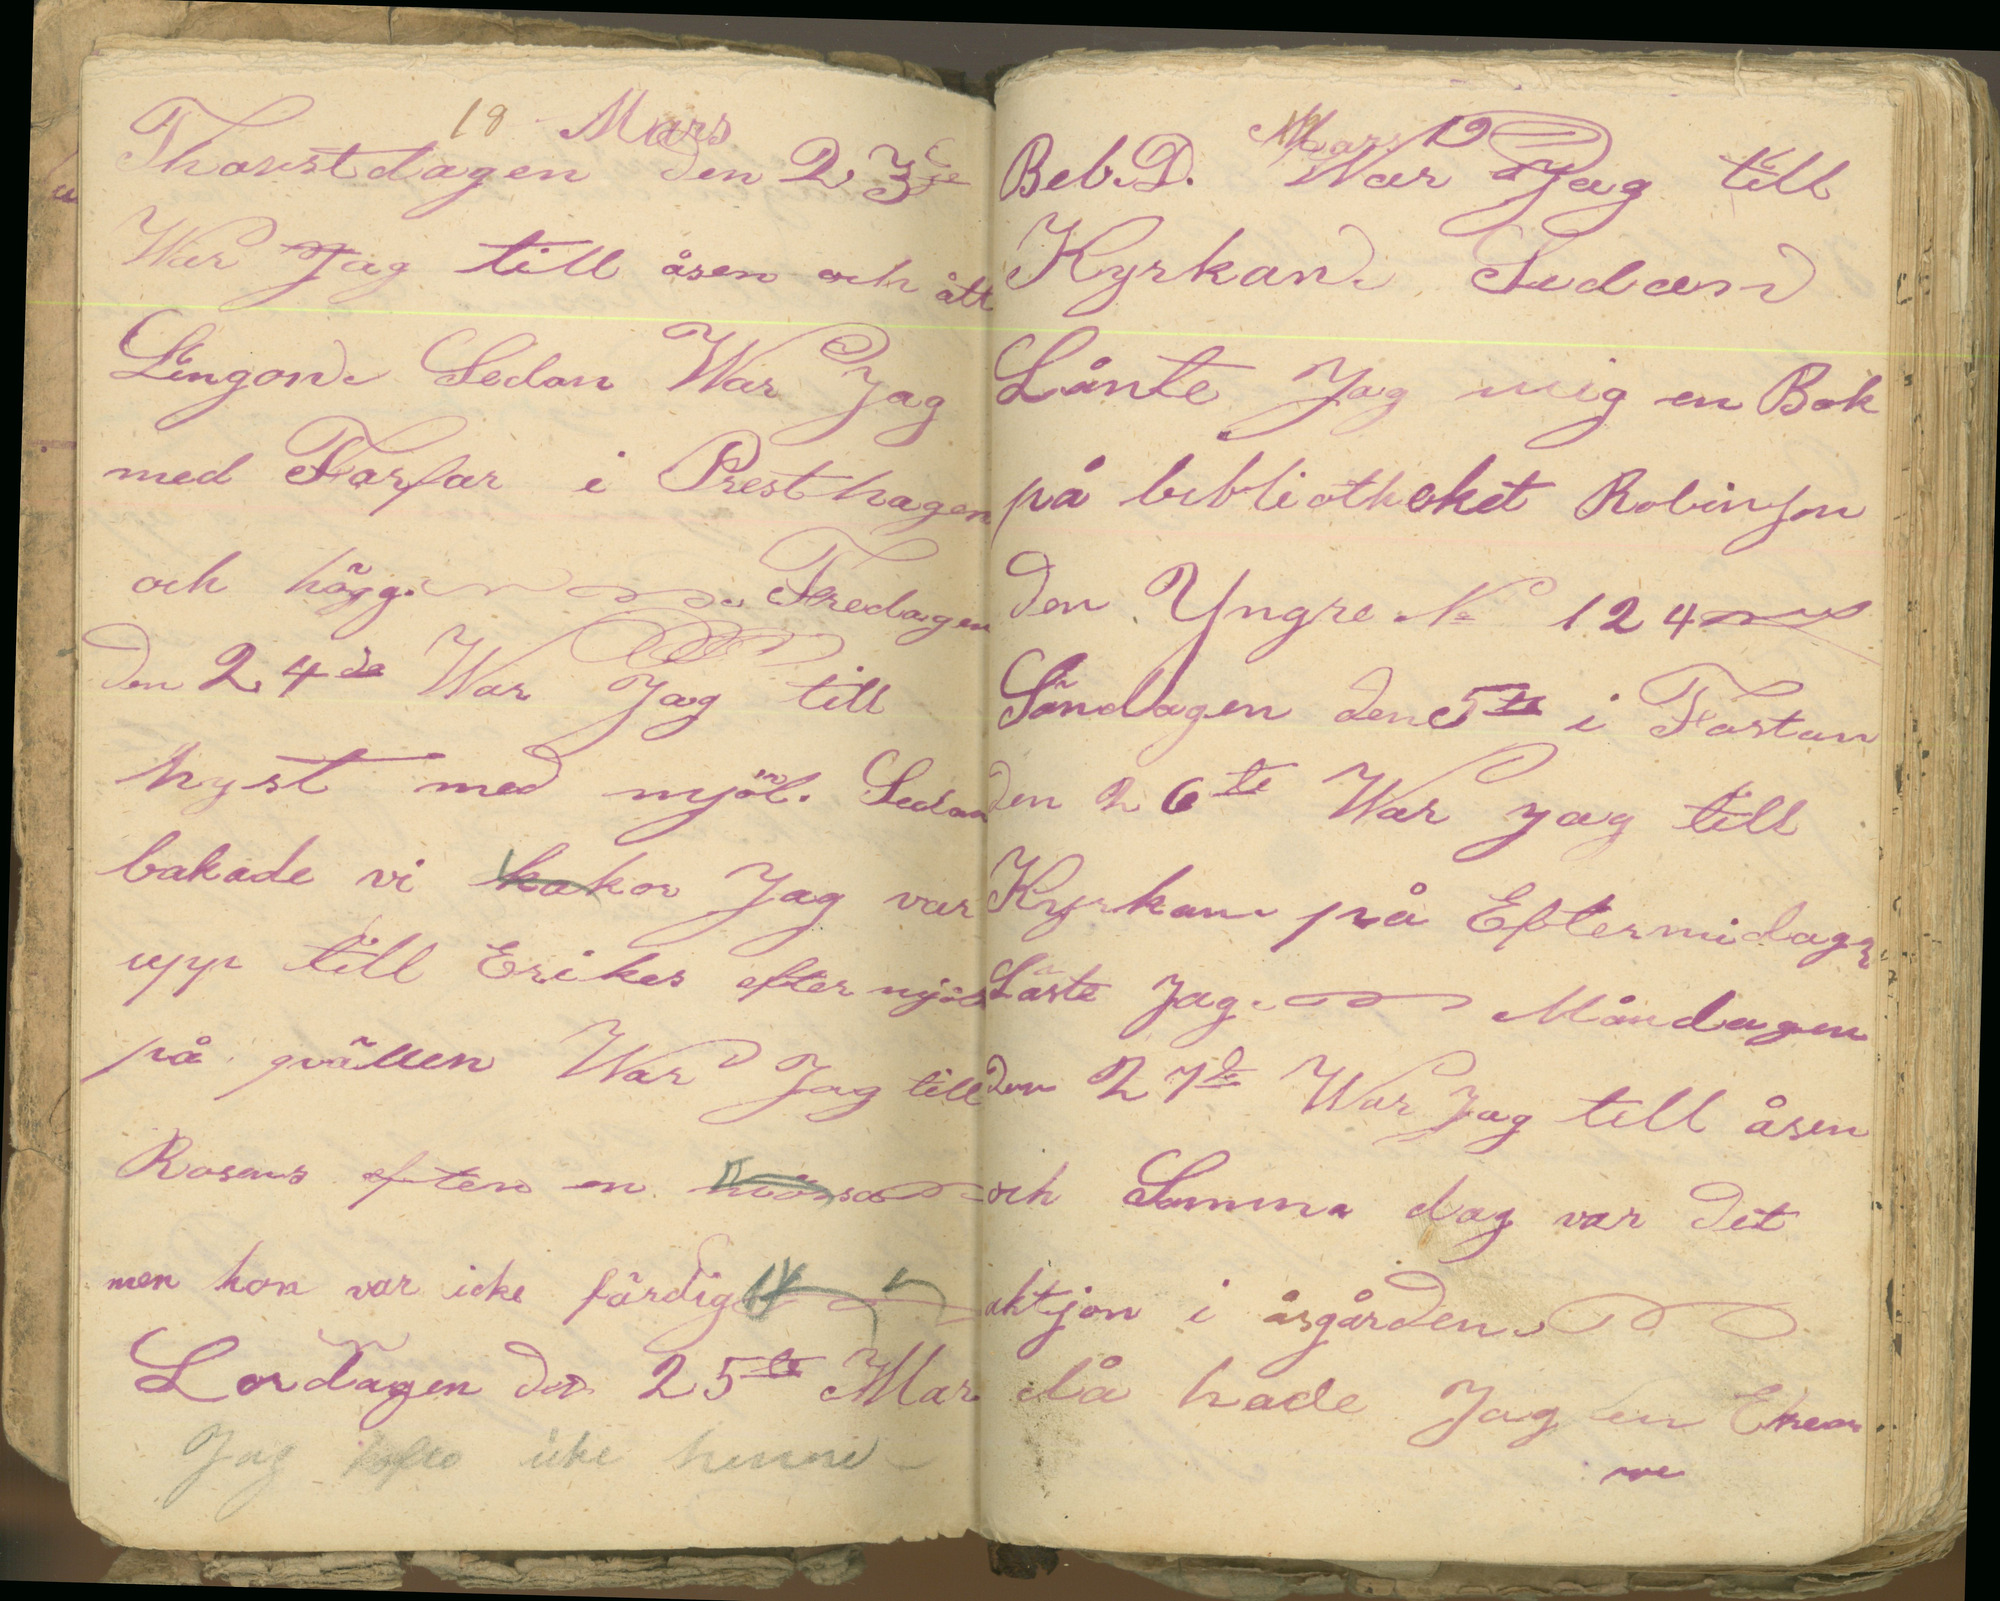 18 Mars
Thorstdagen den 23je
War Jag till åsen och ått
Lingon. Sedan War Jag
med Farfar i Presthagen
och högg. Fredagen
den 24de War Jag till
hyst med mjöl. Sedan
bakade vi kakor Jag var
upp till Erikes efter mjöl
på qvällen War Jag till
Rosens efter en mössa
men hon var icke färdig
Lordagen den 25te Mar
Jag icke henne
Mars 19
Beb. D. War Jag till
Kyrkan. Sedan
Lånte Jag mig en Bok
på bibliotheket Robinson
den Yngre No 124
Söndagen den 5te i Fastan
den 26te War Jag till
Kyrkan på Eftermidagn
Läste Jag. Måndagen
den 27de War Jag till åsen
och Samma dag var det
aktjon i åsgården.
då hade Jag en